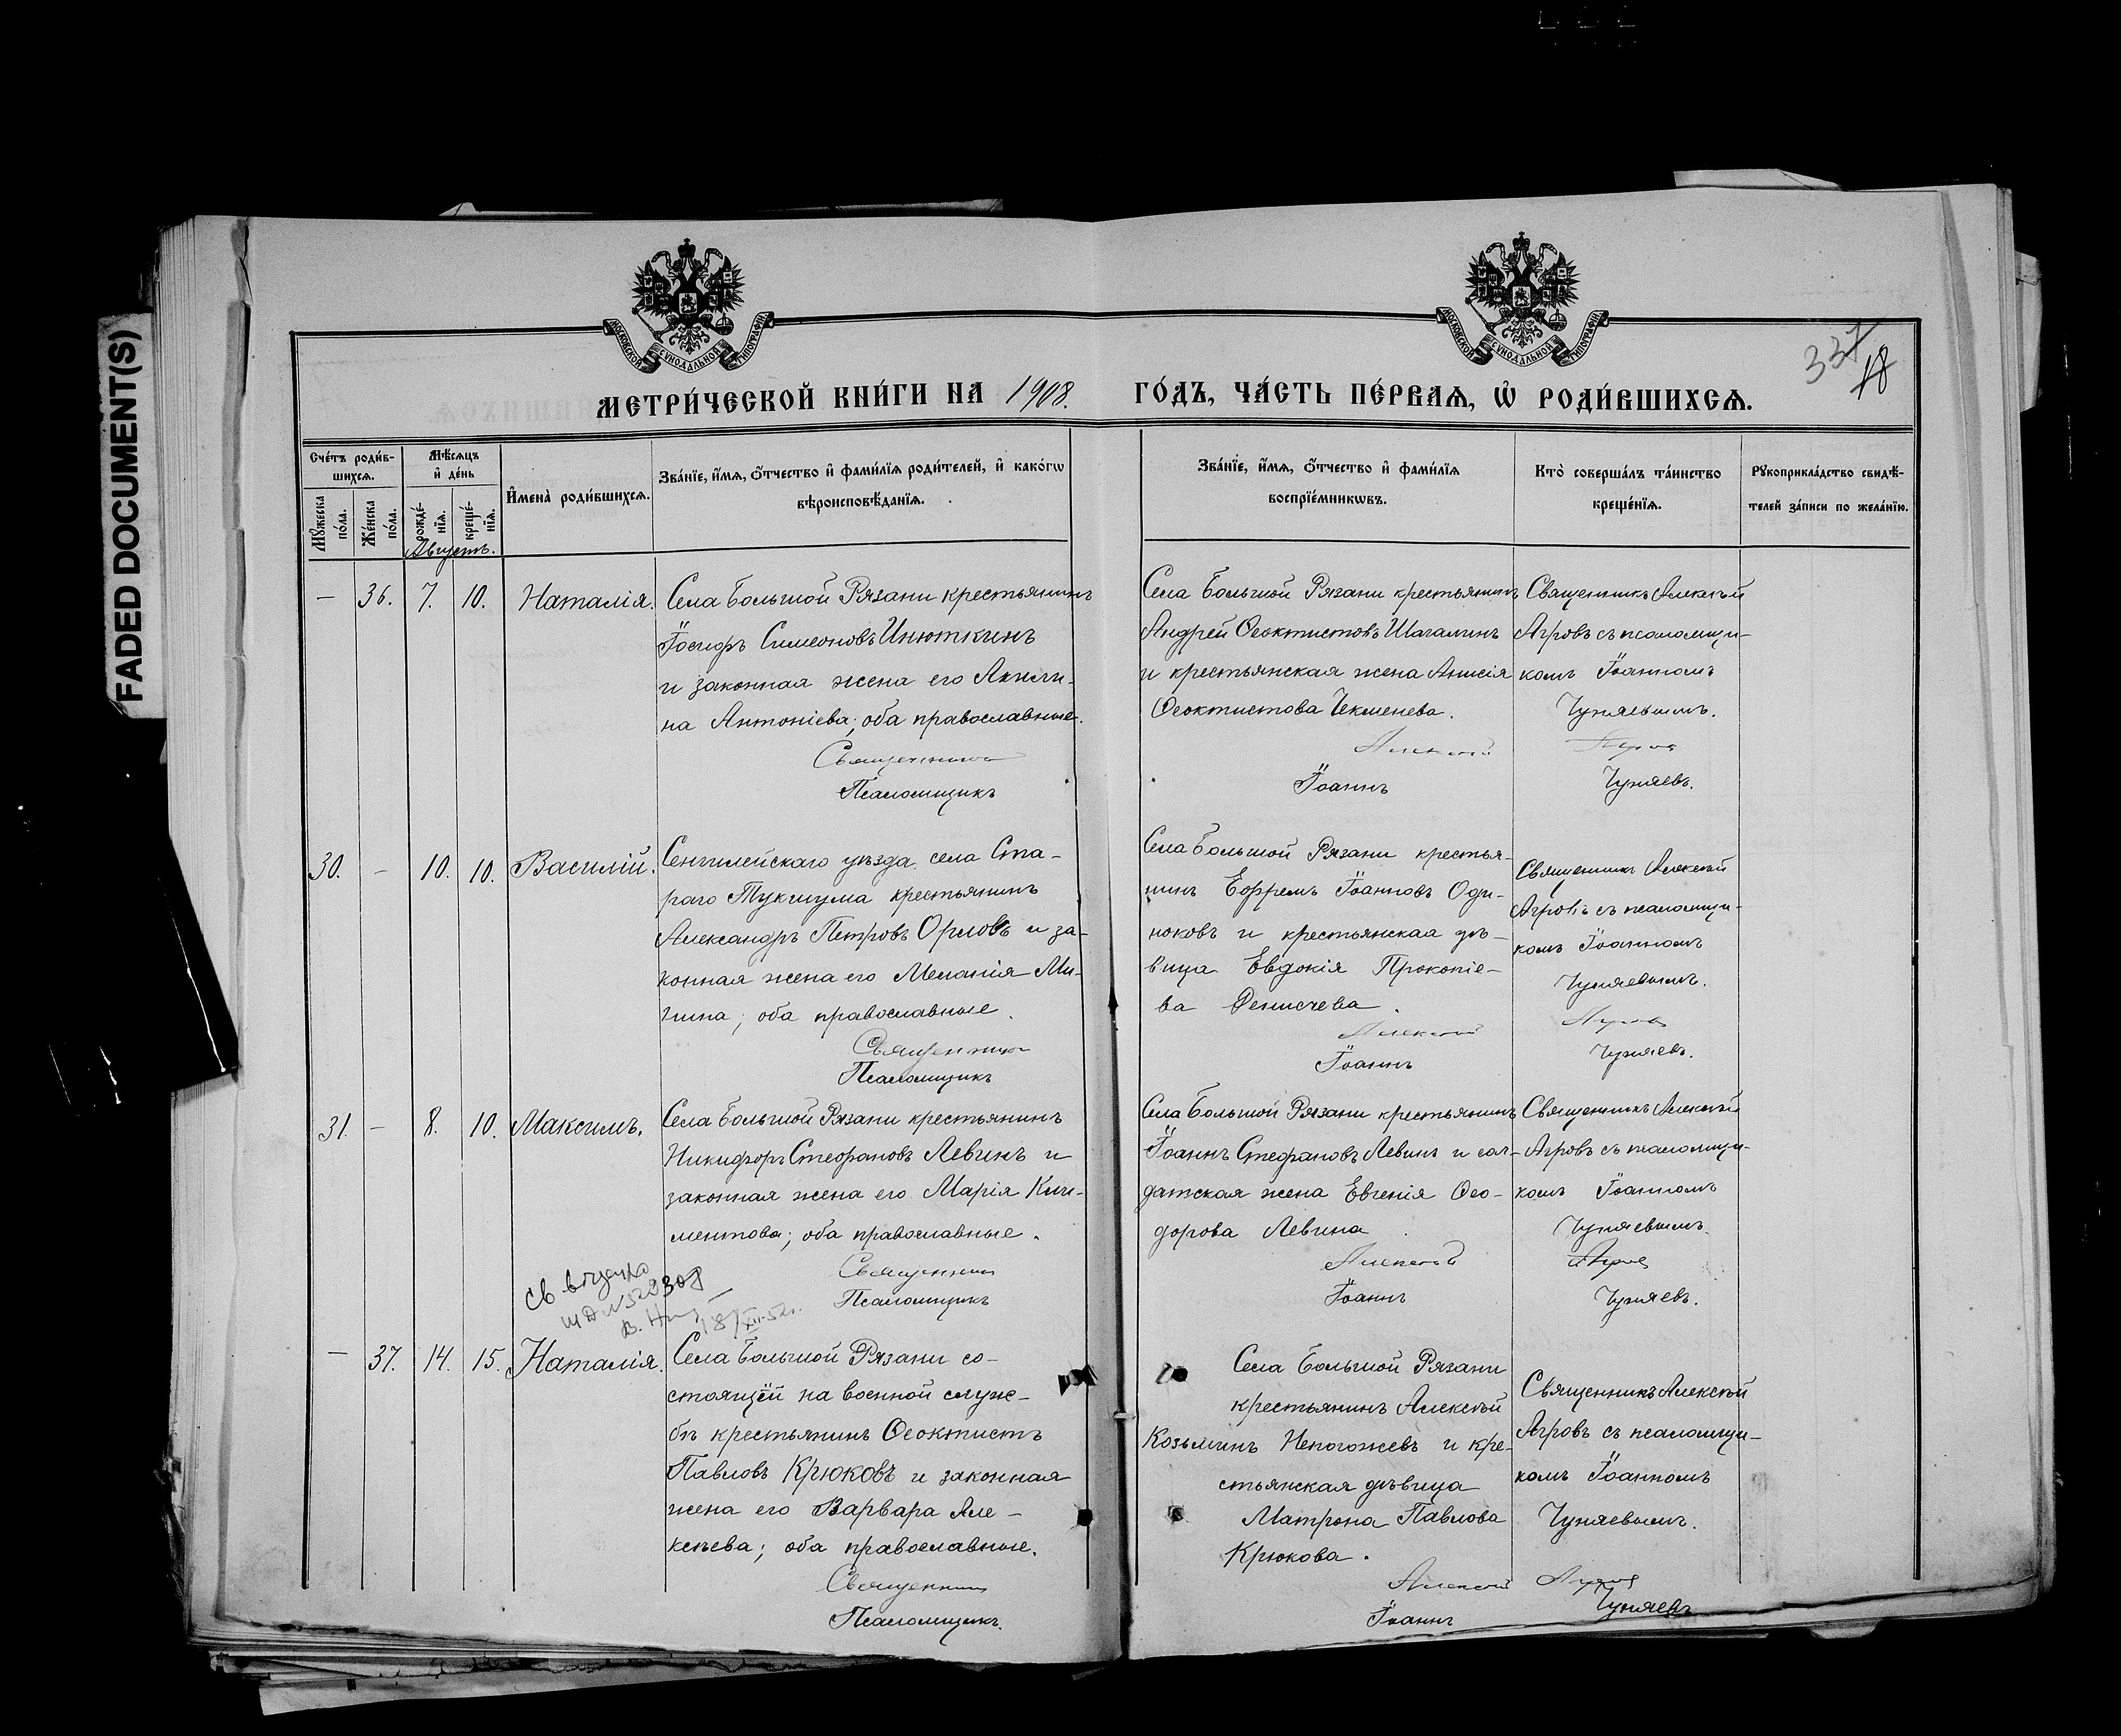 FADED DOCUMENT(S)
МОСКОВСКОЙ СѴНОДАЛЬНОЙ ТИПОГРАФІИ
МОСКОВСКОЙ СѴНОДАЛЬНОЙ ТИПОГРАФІИ
337
18
МЕТРИ́ЧЕСКОЙ КНИ́ГИ НА 1908.
ГО́ДЪ, ЧА́СТЬ ПЕ́РВАѦ, Ѡ҆ РОДИ́ВШИХСѦ.
Сче́тъ роди́в-
шихсѧ.
Мꙋ́жеска по́ла.
Же́нска по́ла.
Мѣ́сѧцъ
и҆ де́нь
рожде́-
нїѧ.
креще́-
нїѧ.
Августъ.
И҆мена̀ роди́вшихсѧ.
Зва́нїе, и҆́мѧ, ѻ҆́тчество и҆ фами́лїѧ роди́телей, и҆ како́гѡ
вѣроисповѣ́данїѧ.
Зва́нїе, и҆́мѧ, ѻ҆́тчество и҆ фами́лїѧ
воспрїе́мникѡвъ.
Кто̀ соверша́лъ та́инство
креще́нїѧ.
Рꙋкоприкла́дство свидѣ́-
телей за́писи по жела́нїю.
— 36. 7. 10. Наталія.
Села Большой Рязани крестьянинъ
Іосифъ Симеоновъ Инюткинъ
и законная жена его Акили-
на Антоніева; оба православные.
Священникъ
Псаломщикъ
Села Большой Рязани крестьянинъ
Андрей Ѳеоктистовъ Шагалинъ
и крестьянская жена Анисія
Ѳеоктистова Чекменева.
Алексѣй
Іоаннъ
Священникъ Алексѣй
Агровъ съ псаломщи-
комъ Іоанномъ
Чуняевымъ.
Агровъ
Чуняевъ.
30. — 10. 10. Василій.
Сенгилейскаго уѣзда села Ста-
раго Тукшума крестьянинъ
Александръ Петровъ Орловъ и за-
конная жена его Меланія Ми-
нина; оба православные.
Священникъ
Псаломщикъ
Села Большой Рязани крестья-
нинъ Ефремъ Іоанновъ Оди-
ноковъ и крестьянская дѣ-
вица Евдокія Прокопіе-
ва
Алексѣй
Іоаннъ
Священникъ Алексѣй
Агровъ съ псаломщи-
комъ Іоанномъ
Чуняевымъ.
Агровъ
Чуняевъ.
31. — 8. 10. Максимъ.
Села Большой Рязани крестьянинъ
Никифоръ Стефановъ Левинъ и
законная жена его Марія Кли-
ментова; оба православные.
Священникъ
Псаломщикъ
Села Большой Рязани крестьянинъ
Іоаннъ Стефановъ Левинъ и сол-
датская жена Евгенія Ѳео-
дорова Левина
Алексѣй
Іоаннъ
Священникъ Алексѣй
Агровъ съ псаломщи-
комъ Іоанномъ
Чуняевымъ.
Агровъ
Чуняевъ.
св выдано
18/XII-52г.
— 37. 14. 15. Наталія.
Села Большой Рязани со-
стоящій на военной служ-
бѣ крестьянинъ Ѳеоктистъ
Павловъ Крюковъ и законная
жена его Варвара Але-
ксѣева; оба православные.
Священникъ
Псаломщикъ.
Села Большой Рязани
крестьянинъ Алексѣй
Козьминъ Непогожевъ и кре-
стьянская дѣвица
Матрона Павлова
Крюкова.
Алексѣй
Іоаннъ
Священникъ Алексѣй
Агровъ съ псаломщи-
комъ Іоанномъ
Чуняевымъ.
Агровъ
Чуняевъ